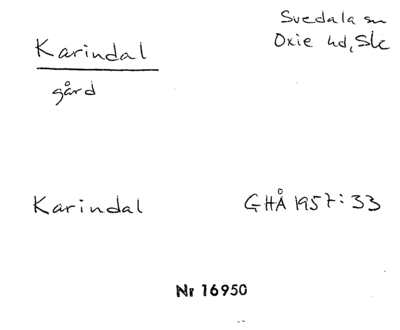 Svedala sn
Karindal
Oxie hd, Sk
gård
Karindal GHÅ 1957:33
Nr 16950